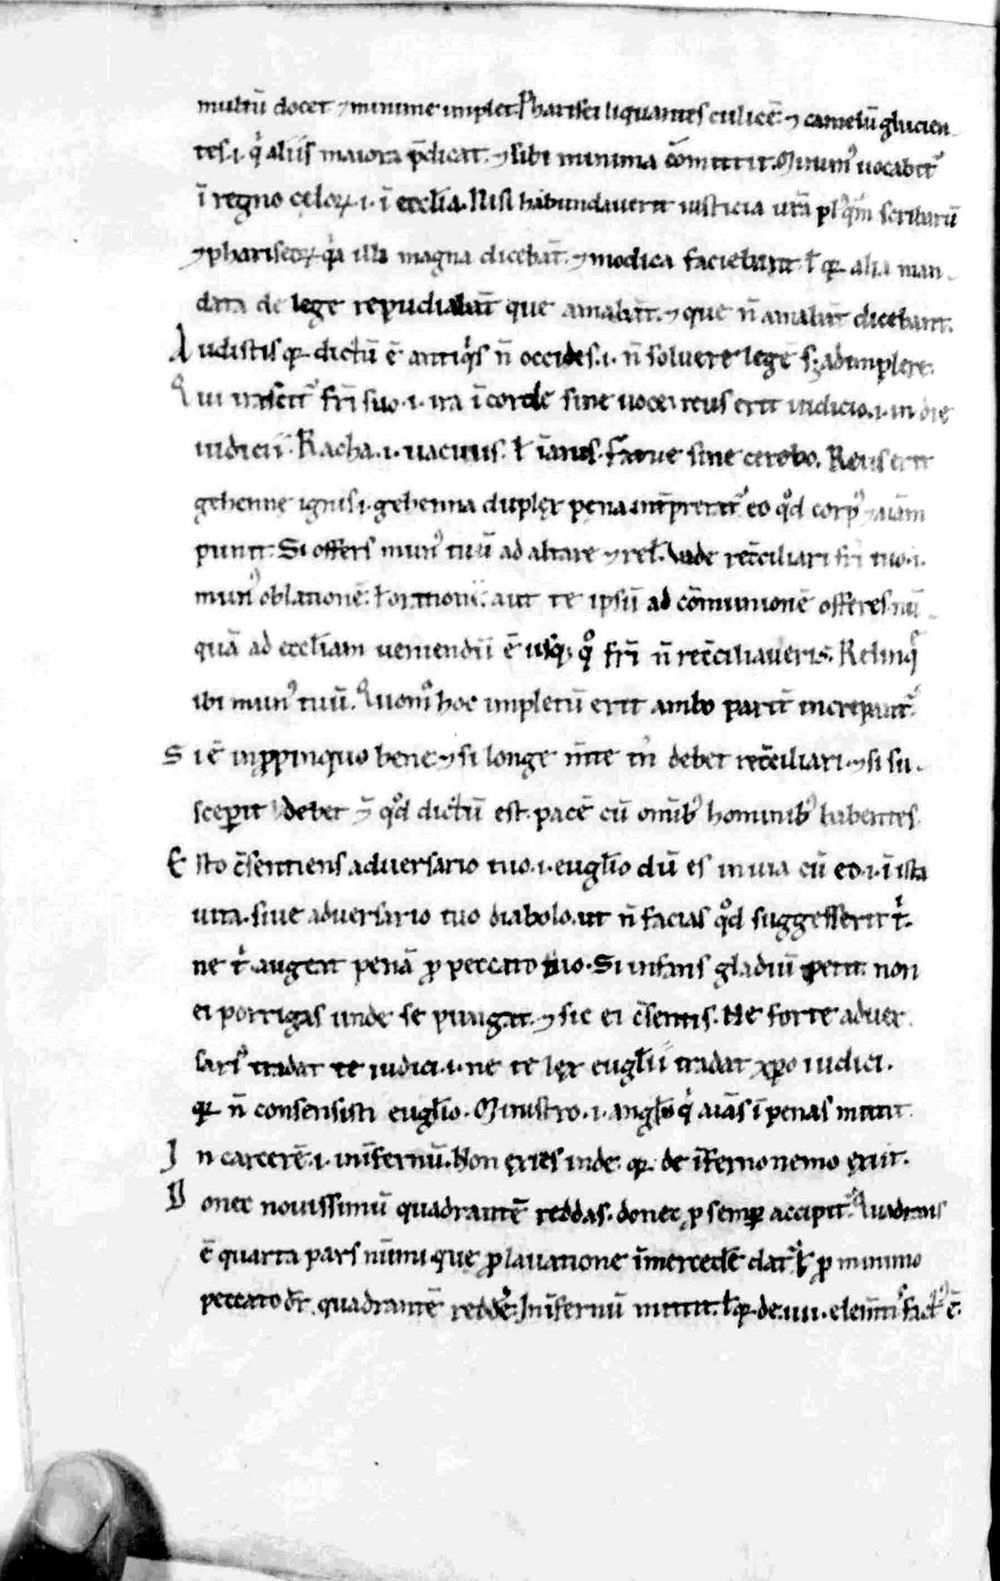 multū docet ⁊ minime implet. Pharisei liquantes culicē ⁊ camelū glucien-
tes .i. qͥ aliis maiora p̄dicat ⁊ sibi minima cōmittit. Minimꝰ uocabitᷣ
ī regno cęloꝝ .i. ī eccl̄ia. Nisi habundauerit iusticia ur̄a plꝰ qͣm scribarū
⁊ phariseoꝝ qͥa illi magna dicebāt ⁊ modica faciebant. ł qꝛ alia man-
data de lege repudiabāt que amabāt ⁊ que n̄ amabāt dicebant.
Audistis qꝛ dictū ē antiqͥs n̄ occides .i. n̄ soluere legē sꝫ adimplere.
Qui irascitᷣ fr̄i suo .i. ira ī corde sine uoce reus erit iudicio .i. in die
iudicii. Racha .i. uacuus. ł īanis. fatue sine cerebo. Reus erit
gehenne ignis .i. gehenna duplex pęna int̄pretatᷣ eo qͦd corpꝰ ⁊ aīam
punit. Si offers munꝰ tuū ad altare ⁊ rel̄. Vade rec̄ciliari fr̄i tuo .i.
munꝰ oblationē. ł orationē. aut te ipsū ad cōmunionē offeres nū-
quā ad eccl̄iam ueniendū ē usqꝫ qͦ fr̄i n̄ rec̄ciliaueris. Relinqͣ
ibi munꝰ tuū. Quomͦ hoc impletū erit ambo parit̄
Si ē in ꝓpinquo bene ⁊ si longe m̄te tn̄ debet rec̄ciliari. ⁊ si su-
sceperit debet qͦd dictū est. pacē cū omībꝰ hominibꝰ habentes.
Esto c̄sentiens aduersario tuo .i. eugl̄io dū es in uia cū eo .i. ī ista
uita. siue aduersario tuo diabolo. ut n̄ facias qͦd suggesserit tͥ.
ne tͥ augeat penā ꝓ peccato tuo. Si infans gladiū petit. non
ei porrigas unde se pungat. ⁊ sic ei c̄sentis. Ne forte aduer-
sariꝰ tradat te iudici .i. ne te lex eugl̄ii tradat xp̄o iudici.
qꝛ n̄ consensisti eugl̄io. Ministro .i. angl̄o qͥ aīas ī penas mittit.
In carcerē .i. infernū. Non exies inde. qꝛ de īferno nemo exiit.
Donec nouissimū quadrantē reddas. donec ꝓ semꝑ accipitᷣ. Quadrans
ē quarta pars nūmi que ꝓ lauatione ī mercedē datᷣ. ł ꝓ minimo
peccato dr̄ quadrantē redde. In infernū mittit. ł qꝛ de .iiii. elem̄tis factꝰ ē.